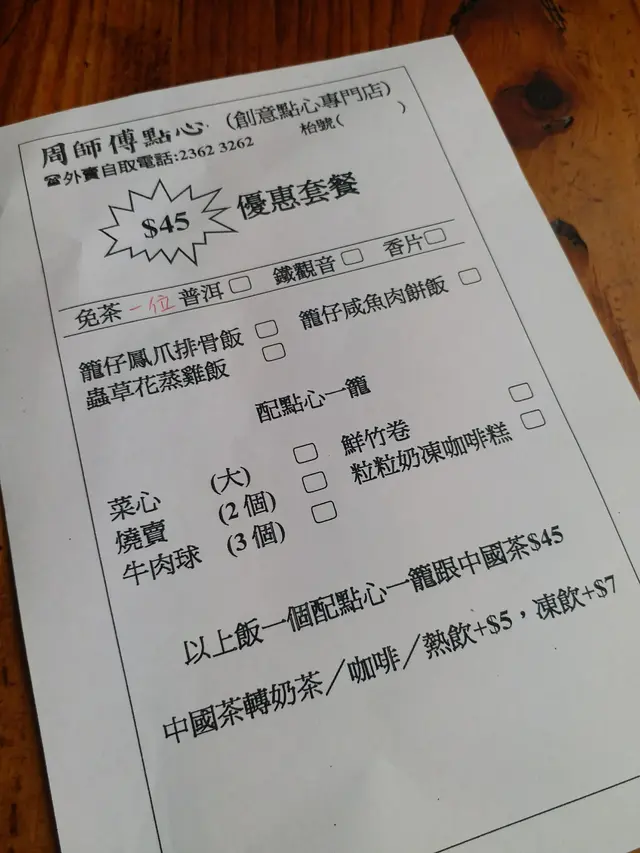 周師傅點心 (創意點心專門店)
☎外賣自取電話:2362 3262 枱號( )
$45 優惠套餐
免茶 一位 普洱 鐵觀音 香片
籠仔鳳爪排骨飯 籠仔咸魚肉餅飯
蟲草花蒸雞飯
配點心一籠
菜心 (大) 鮮竹卷
燒賣 (2 個) 粒粒奶凍咖啡糕
牛肉球 (3 個)
以上飯一個配點心一籠跟中國茶$45
中國茶轉奶茶／咖啡／熱飲+$5，凍飲+$7